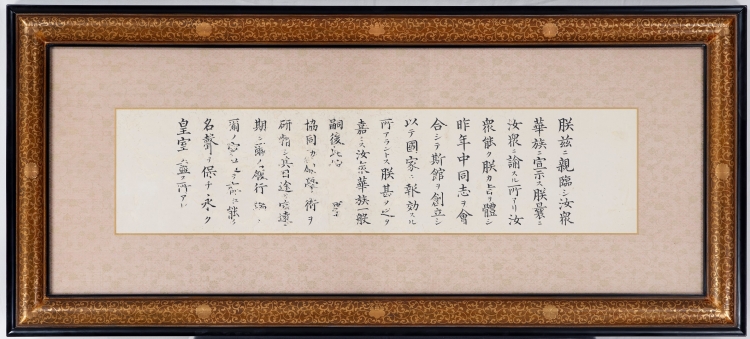 朕茲ニ親臨シ汝衆
華族ニ宣示ス朕曩ニ
汝衆ニ諭スル所アリ汝
衆能ク朕カ旨ヲ體シ
昨年中同志ヲ會
合シテ斯館ヲ創立シ
以テ國家ニ報効スル
所アラントス朕甚タ之ヲ
嘉ミス汝衆華族一般
嗣後此
協同 學術ヲ
研精シ其目途
期シ爾ノ銀行
爾ノ
名聲ヲ保チ永ク
皇室 益 所アレ